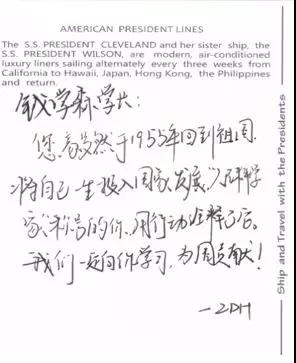 AMERICAN PRESIDENT LINES
The S.S. PRESIDENT CLEVELAND and her sister ship, the
S.S. PRESIDENT WILSON, are modern, air-conditioned
luxury liners sailing alternately every three weeks from
California to Hawaii, Japan, Hong Kong, the Philippines
and return.
钱学森学长:
您毅然于1955年回到祖国,
将自己一生投入国家发展,"人民科学
家"称号的你,用行动诠释了它。
我们一定向你学习,为国贡献!
—ZDH
Ship and Travel with the Presidents